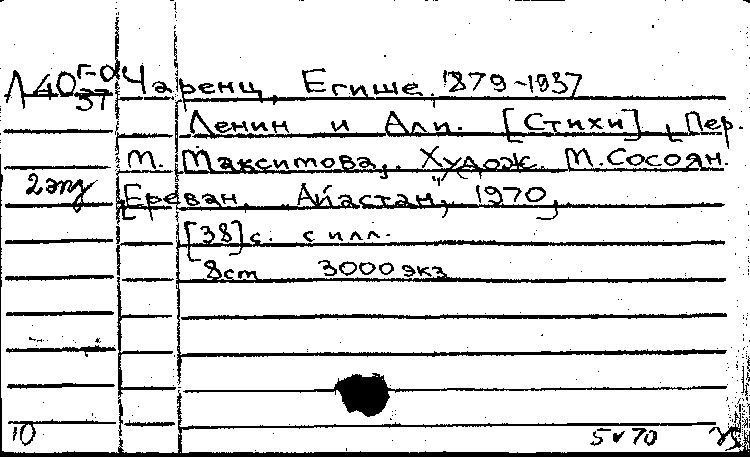 Л 40 Г-04
37
Чаренц, Егише, 1879-1937
Ленин и Али. [Стихи] [Пер.
М. Максимова, Худож. М. Сосоян.
2 экз
Ереван, "Айастан", 1970,
[38] с. с илл.
8 ст 3000 экз
10
5 v 70